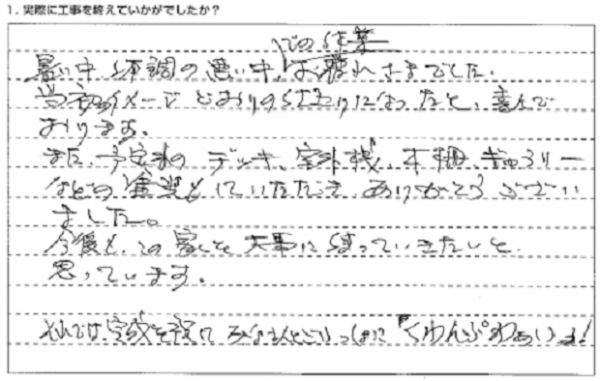 1. 実際に工事を終えていかがでしたか？
での作業
暑い中、体調の悪い中、お疲れさまでした。
当初のイメージどおりの仕上りになったと、喜んで
おります。
また、予定外のデッキ、室外機、木柵、ぎゃらりー
などの塗装もしていただき ありがとうござい
ました。
今後も、この家を大事に守っていきたいと
思っています。
それでは、完成を祝して みなさんといっしょに